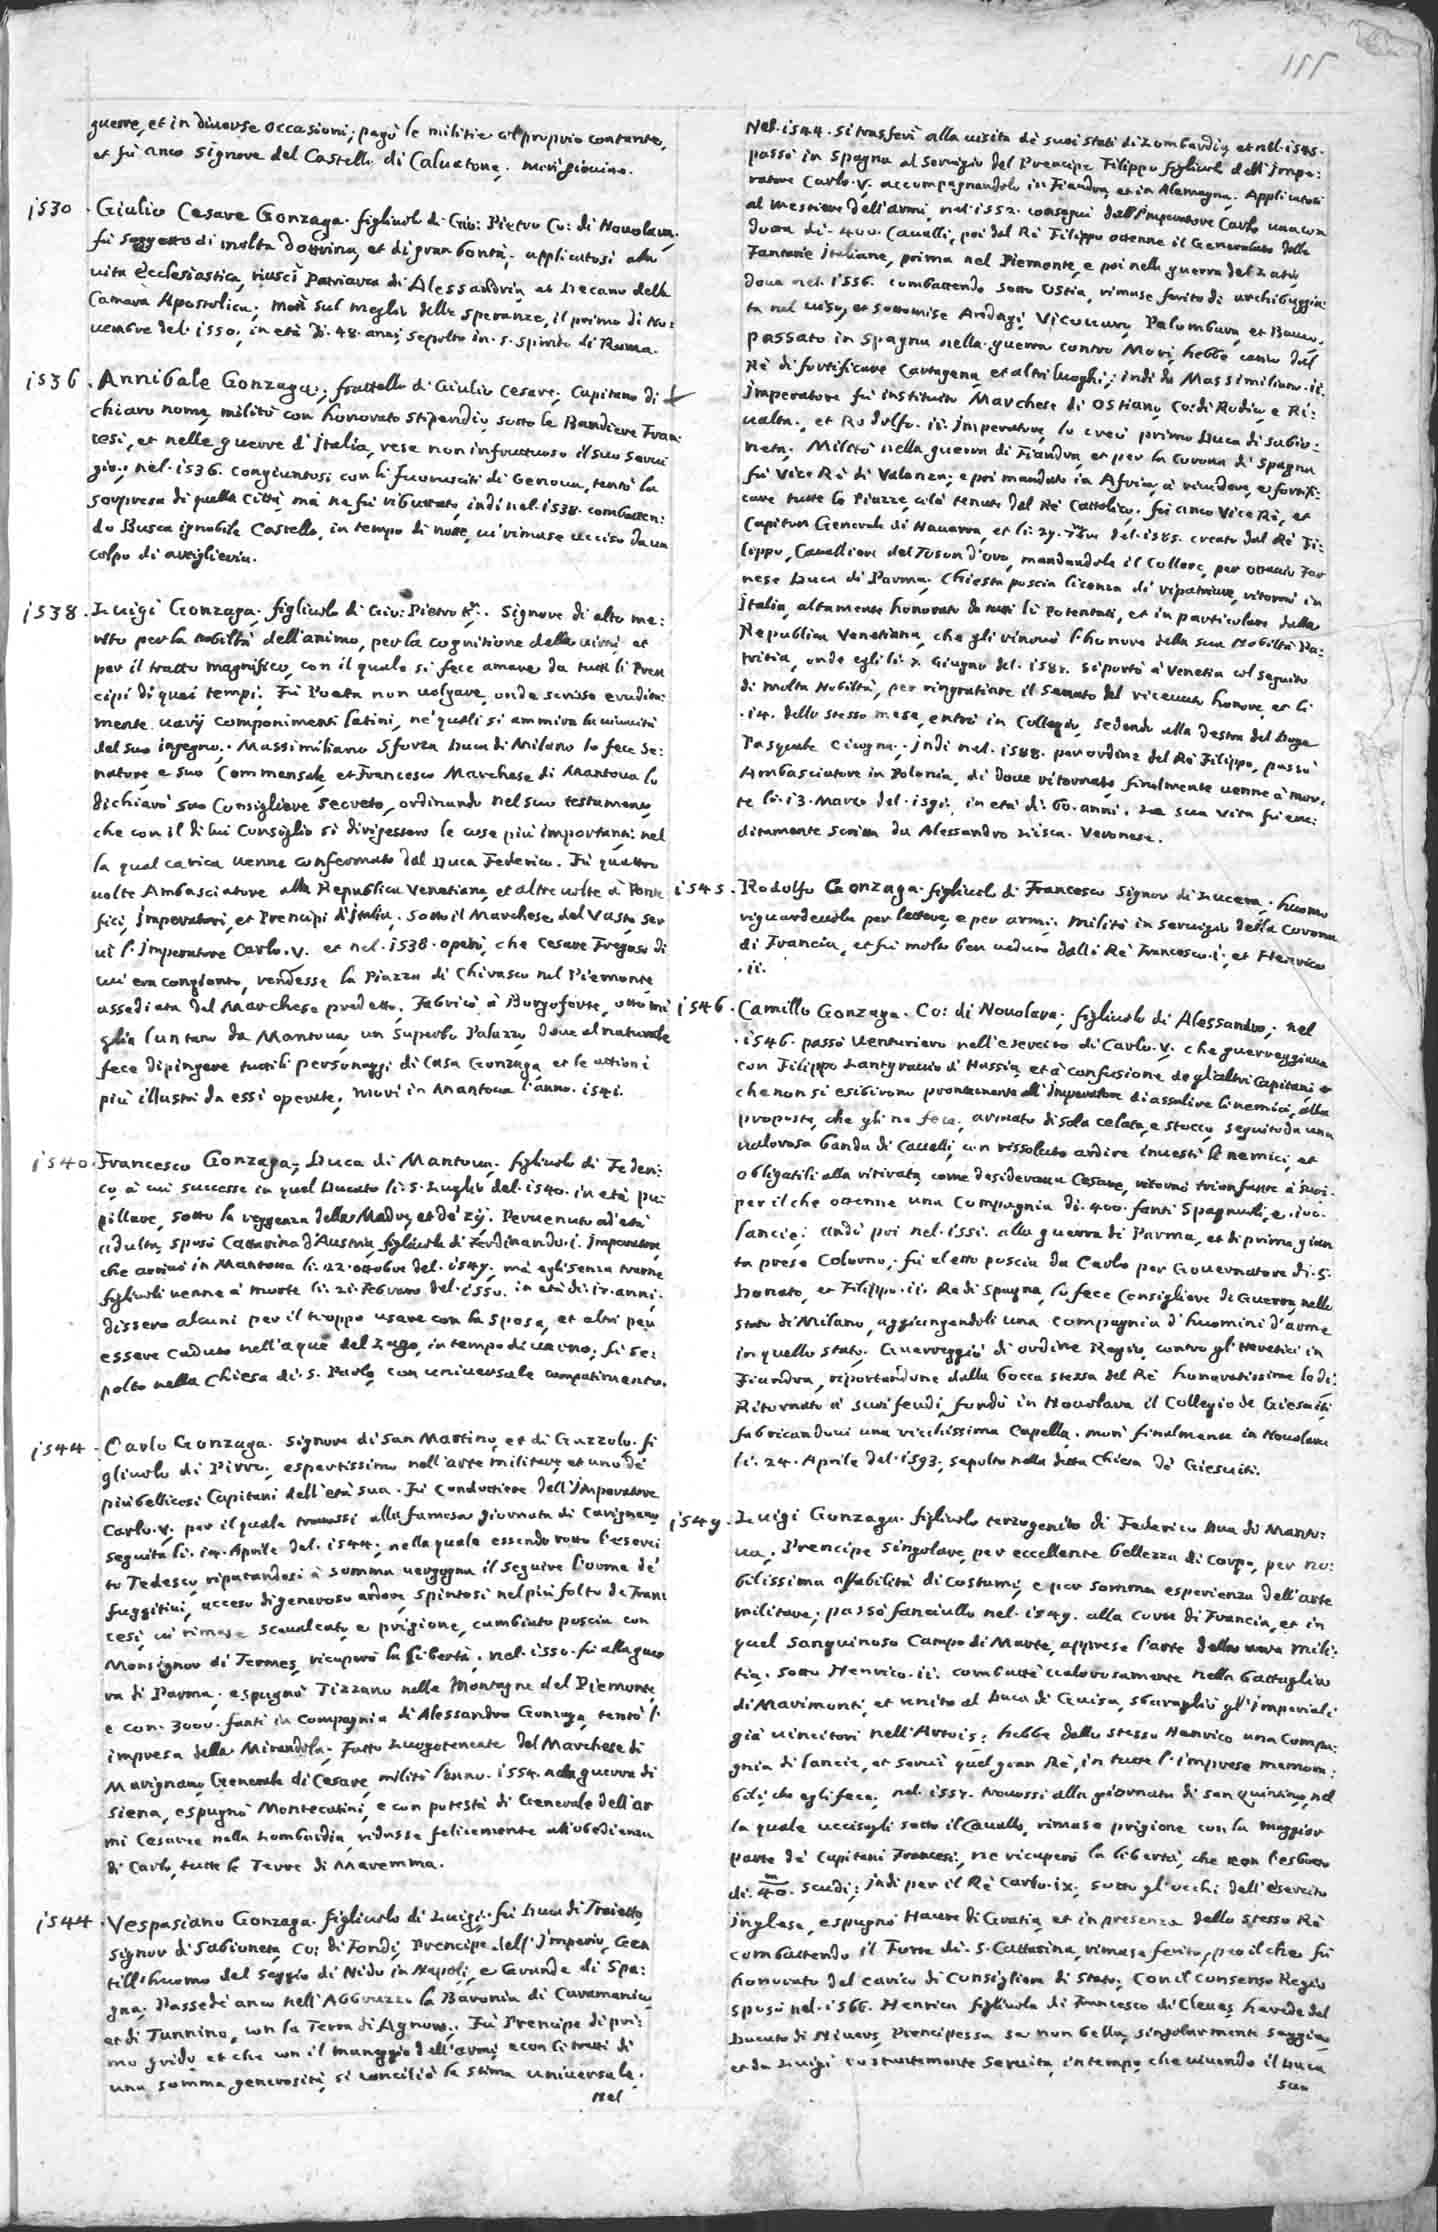 155
guerre, et in diverse occasioni; pagò le militie col proprio contante,
et fù anco Signore del Castello di Calvatone; morì giovine.
1530 . Giulio Cesare Gonzaga. figliuolo di Gio: Pietro Co: di Novolara,
fù soggetto di molta dottrina, et di gran bontà; applicatosi alla
vita Ecclesiastica, riuscì Patriarca di Alessandria, et Decano della
Camara Apostolica; morì sul meglio delle speranze, il primo di No:
vembre del. 1550, in età di. 48. anni; sepolto in. S. Spirito di Roma.
1536 . Annibale Gonzaga; frattello di Giulio Cesare; Capitano di
chiaro nome, militò con honorato stipendio sotto le Bandiere Fran:
cesi, et nelle guerre d'Italia, rese non infruttuoso il suo Servi
gio; nel. 1536. congiuntosi con li fuorusciti di Genova, tentò la
sorpresa di quella Città, mà ne fù ributtato, indi nel. 1538. combatten:
do Busca ignobile Castello, in tempo di notte, vi rimase ucciso da un
colpo di artiglieria.
1538 . Luigi Gonzaga. figliuolo di Gio: Pietro Signore di alto me:
rito per la nobiltà dell'animo, per la cognitione della virtù, et
per il tratto magnifico, con il quale si fece amare da tutti li Pren
cipi di quei tempi; Fù Poeta non volgare, onde scrisse erudita:
mente varij componimenti latini, ne' quali si ammira la vivacità
del suo ingegno. Massimiliano Sforza Duca di Milano lo fece Se:
natore, e suo Commensale, et Francesco Marchese di Mantova lo
dichiarò suo Consigliere secreto, ordinando nel suo testamento,
che con il di lui Consiglio si dirigessero le cose più importanti: nel
la qual carica venne confermato dal Duca Federico. Fù quattro
volte Ambasciatore alla Republica Venetiana, et altre volte à Ponte
fici, Imperatori, et Prencipi d'Italia. Sotto il Marchese del Vasto ser
vì l'Imperatore Carlo. V. et nel. 1538. operò, che Cesare Fregoso di
lui era congionto, rendesse la Piazza di Chivasco nel Piemonte
assediata dal Marchese predetto. Fabricò à Borgoforte, otto mi
glia luntano da Mantova, un Superbo Palazzo, dove al naturale
fece dipingere tutti li personaggi di Casa Gonzaga, et le attioni
più illustri da essi operate; morì in Mantova l'anno. 1541.
1540 . Francesco Gonzaga; Duca di Mantova; figliuolo di Federi:
co, à cui successe in quel Ducato li. 5. Luglio del. 1540. in età pu:
pillare, sotto la reggenza della Madre, et de' zij. Pervenuto ad età
adulta, sposò Cattarina d'Austria, figliuola di Ferdinando. i. Imperatore,
che arrivò in Mantova li. 22. ottobre del. 1549; mà egli senza trarne
figliuoli venne à morte li. 21. Febraro del. 1550. in età di. 17. anni;
dissero alcuni per il troppo usare con la sposa, et altri per
essere caduto nell'aque del Lago, in tempo di verno; fù se:
polto nella Chiesa di. S. Paolo, con universale compatimento.
1544 . Carlo Gonzaga. Signore di San Martino, et di Gazzolo. fi
gliuolo di Pirro, espertissimo nell'arte militare, et uno de'
più bellicosi Capitani dell'età sua. Fù Conduttiere dell'Imperatore
Carlo. V; per il quale trovossi alla famosa giornata di Carignano,
seguita li. 14. Aprile del. 1544; nella quale essendo rotto l'eserci
to Tedesco, riputandosi à somma vergogna il seguire l'orme de'
fuggitivi, acceso di generoso ardore, spintosi nel più folto de Fran
cesi, vi rimase scavalcato, e prigione, cambiato poscia con
Monsignor di Termes, ricuperò la libertà. nel. 1550. fù alla guer
ra di Parma. espugnò Tizzano nelle Montagne del Piemonte,
e con. 3000. fanti in compagnia di Alessandro Gonzaga, tentò l'
impresa della Mirandola. Fatto Luogotenente del Marchese di
Marignano, Generale di Cesare, militò l'anno. 1554. nella guerra di
Siena, espugnò Montecatini, e con potestà di Generale dell'ar
mi Cesaree nella Lombardia, ridusse felicemente all'obedienza
di Carlo, tutte le Terre di Maremma.
1544 . Vespasiano Gonzaga. figliuolo di Luigi. fù Duca di Traietto,
Signor di Sabioneta, Co: di Fondi, Prencipe dell'Imperio, Gen
till'huomo del Seggio di Nido in Napoli, e Grande di Spa:
gna; Possedè anco nell'Abbruzzo la Baronia di Caramanico,
et di Tunnino, con la Terra di Agnon. Fù Prencipe di pri:
mo grido, et che con il maneggio dell'armi, e con li tratti di
una somma generosità, si conciliò la stima universale.
nel
Nel. 1544. si trasferì alla visita de suoi stati di Lombardia, et nel. 1545.
passò in Spagna al Servigio del Prencipe Filippo figliuolo dell'Impe:
ratore Carlo. V. accompagnandolo in Fiandra, et in Alemagna. Applicatosi
al mestiere dell'armi, nel. 1552. conseguì dall'Imperatore Carlo una con
dotta di. 400. Cavalli, poi dal Rè Filippo ottenne il Generalato della
Fantarie Italiane, prima nel Piemonte, e poi nella guerra del Latio,
dove nel. 1556. combattendo sotto Ostia, rimase ferito di archibuggia
ta nel viso, et sottomise Ardagi, Vicovaro, Palombara, et Bauco.
passato in Spagna nella guerra contro Mori, hebbe carico dal
Rè di fortificare Cartagena, et altri luoghi; indi da Massimiliano. ii.
Imperatore fù instituito Marchese di Ostiano, Co: di Rodigo, e Ri:
valta, et Rodolfo. ii. Imperatore, lo creò primo Duca di Sabio:
neta. Militò nella guerra di Fiandra, et per la Corona di Spagna
fù Vice Rè di Valenza; e poi mandato in Africa, à rivedere, e fortifi:
care tutte le Piazze, colà tenute dal Rè Cattolico. fù anco Vice Rè, et
Capitan Generale di Navarra, et li. 29. 7bre del. 1585. creato dal Rè Fi:
lippo, Cavalliere del Toson d'oro, mandandole il Collare, per Ottavio Far
nese Duca di Parma. Chiesta poscia licenza di ripatriare, ritornò in
Italia, altamente honorato da tutti li Potentati, et in particolare dalla
Republica Venetiana, che gli rinovò l'honore della sua Nobiltà Pa:
tritia, onde egli li. X. Giugno del. 1587. si portò à Venetia col seguito
di molta Nobiltà, per ringratiare il Senato del ricevuto honore, et li
. 14. dello stesso mese, entrò in Collegio, sedendo alla destra del Doge
Pasquale Cicogna. indi nel. 1588. per ordine del Rè Filippo, passò
Ambasciatore in Polonia, di dove ritornato, finalmente venne à mor:
te li. 13. Marzo del. 1591. in età di. 60. anni. La sua vita fù eru:
ditamente scritta da Alessandro Lisca. Veronese.
1545 . Rodolfo Gonzaga. figliuolo di Francesco Signor di Lucera; huomo
riguardevole per lettere, e per armi; militò in servigio della Corona
di Francia, et fù molto ben veduto dalli Rè Francesco. i; et Henrico
. ii.
1546 . Camillo Gonzaga. Co: di Novolara; figliuolo di Alessandro; nel
. 1546. passò Venturiero nell'esercito di Carlo. V. che guerreggiava
con Filippo Lantgravio d'Hassia, et à confusione degli altri Capitani,
che non si esibirono prontamente all'Imperatore di assalire li nemici, alla
proposta, che gli ne fece, armato di sola celata, e stocco, seguito da una
valorosa banda di Cavalli, con rissoluto ardire investì li nemici, et
obligatili alla ritirata, come desiderava Cesare, ritornò trionfante à suoi.
per il che ottenne una Compagnia di. 400. fanti Spagnuoli, e. 100.
lancie; andò poi nel. 1551. alla guerra di Parma, et di prima giun
ta prese Colorno; fù eletto poscia da Carlo per Governatore di. S.
Donato, et Filippo. ii. Rè di Spagna, lo fece Consigliere di Guerra, nello
stato di Milano, aggiungendoli una compagnia d'huomini d'arme
in quello stato. Guerreggiò di ordine Regio, contro gl'Heretici in
Fiandra, riportandone dalla bocca stessa del Rè honoratissime lodi.
Ritornato à suoi feudi, fondò in Novolara il Collegio de Giesuiti,
fabricandovi una ricchissima Capella. morì finalmente in Novolara
li. 24. Aprile del. 1593, sepolto nella detta Chiesa de Giesuiti.
1549 . Luigi Gonzaga. figliuolo terzogenito di Federico Duca di Manto:
va; Prencipe singolare, per eccellente bellezza di corpo, per no:
bilissima affabilità di costumi, e per somma esperienza dell'arte
militare; passò fanciullo nel. 1549. alla Corte di Francia, et in
quel sanguinoso Campo di Marte, apprese l'arte della vera mili:
tia. Sotto Henrico. ii. combattè valorosamente nella battaglia
di Marimonti, et unito al Duca di Guisa, sbaragliò gl'Imperiali
già vincitori nell'Artois; hebbe dallo stesso Henrico una Compa:
gnia di lancie, et servì quel gran Rè, in tutte l'imprese memora:
bili, che egli fece; nel. 1557. trovossi alla giornata di San Quintino, nel
la quale uccisogli sotto il Cavallo, rimase prigione con la maggior
parte de' Capitani Francesi, ne ricuperò la libertà, che con l'esborso
di. 40. m scudi; indi per il Rè Carlo. ix; sotto gl'occhi dell'esercito
Inglese, espugnò Havre di Gratia, et in presenza dello stesso Rè
combattendo il Forte di. S. Cattarina, rimase ferito, per il che fù
honorato del carico di Consigliere di Stato; Con il consenso Regio
sposò nel. 1566. Henrica figliuola di Francesco di Cleves, herede del
Ducato di Nivers, Prencipessa se non bella, singolarmente saggia,
et da Luigi costantemente servita, in tempo, che vivendo il Duca
suo